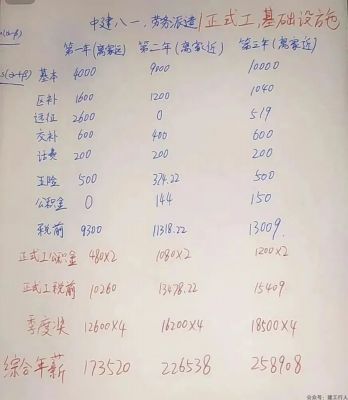 中建八一.劳务派遣/正式工.基础设施
第一年(离家近) 第二年(离家近) 第三年(离家近)
基本 4000 9000 10000
区补 1600 1200 1040
远征 2600 0 519
交补 600 400 600
话费 200 200 200
五险 500 374.22 500
公积金 0 144 150
税前 9300 11318.22 13009.
正式工公积金 480×2 1080×2 1200×2
正式工税前 10260 13478.22 15409
季度奖 12600×4 16200×4 18500×4
综合年薪 173520 226538 258908
公众号:建工行人